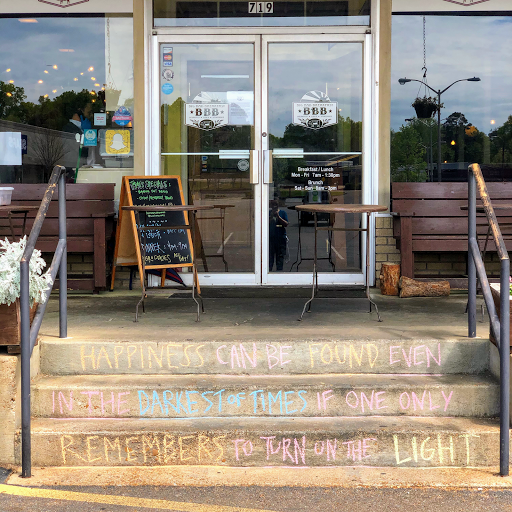 719
BBB
BBB
Breakfast / Lunch
Mon - Fri 7am - 1:30pm
Brunch
Sat - Sun 8am - 2pm
DINNER
HAPPINESS CAN BE FOUND EVEN
IN THE DARKEST OF TIMES IF ONE ONLY
REMEMBERS TO TURN ON THE LIGHT